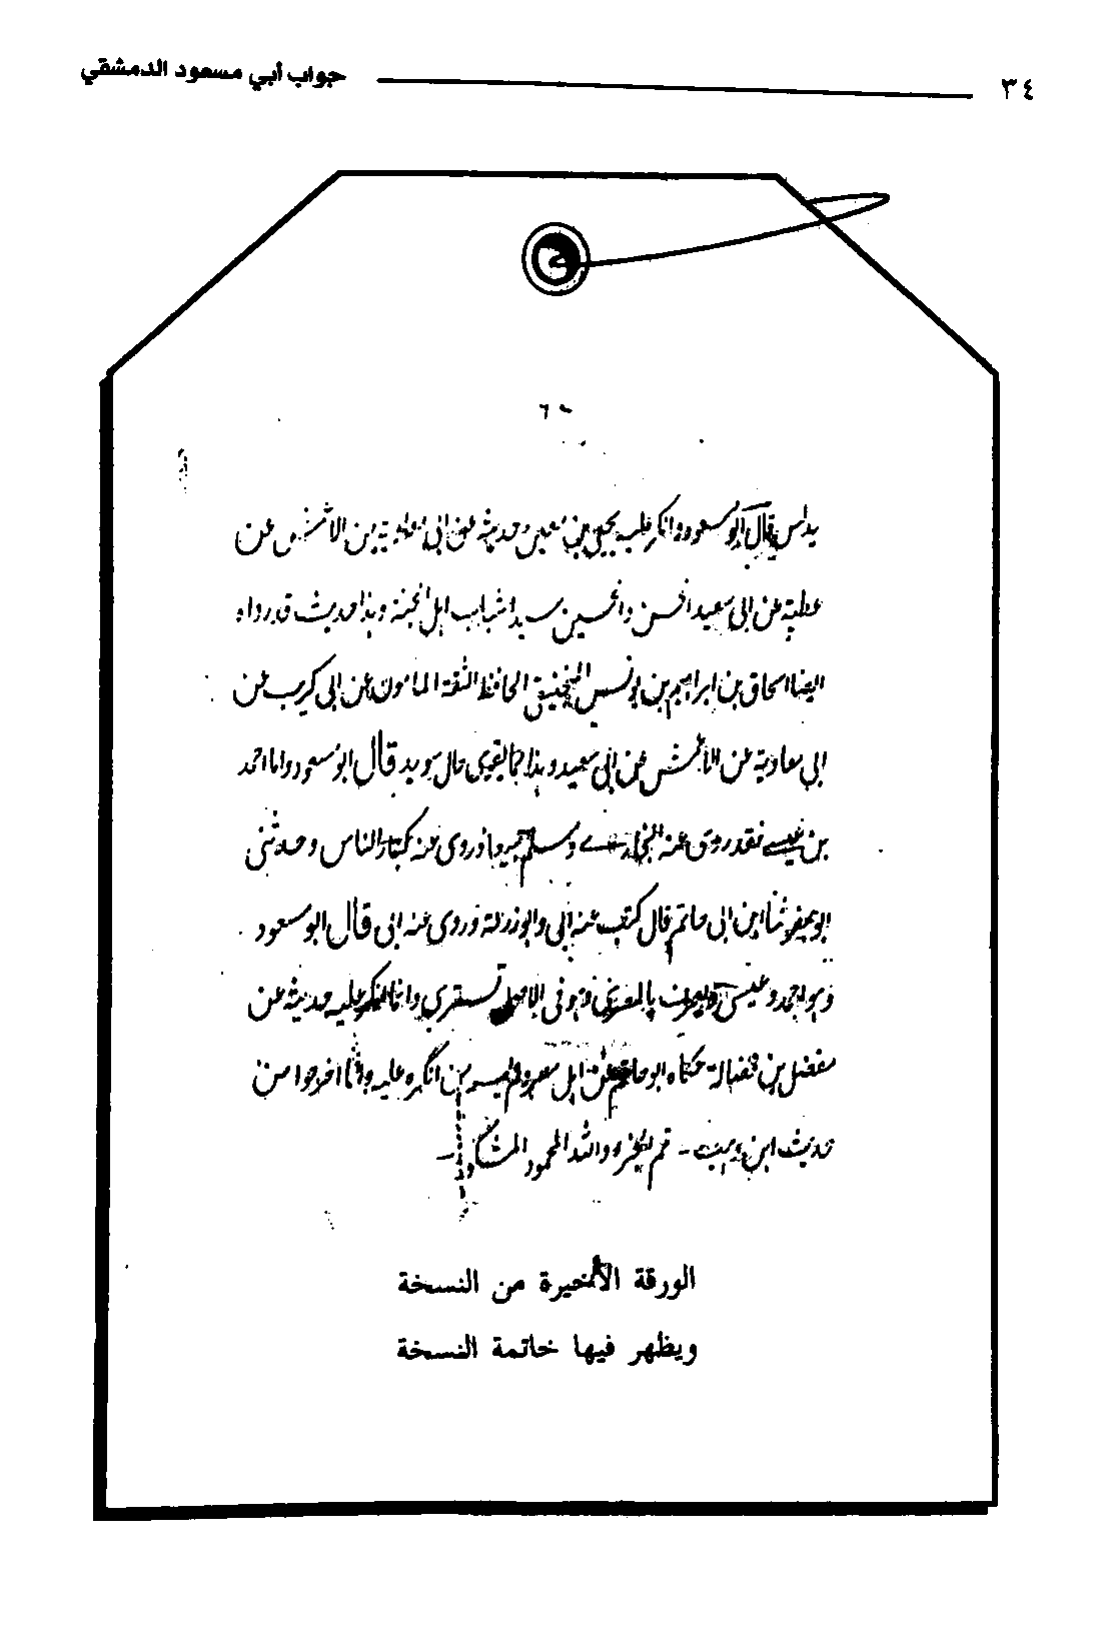 ٣٤
جواب أبي مسعود الدمشقي
يدلس قال ابو مسعود وانكر عليه يحيى بن معين حديثه عن ابى معاوية عن الاعمش عن
عطية عن ابى سعيد الحسن والحسين سيدا شباب اهل الجنة وهذا حديث قد رواه
ايضا اسحاق بن ابراهيم بن يونس المنجنيقى الحافظ الثقة المامون عن ابى كريب عن
ابى معاوية عن الاعمش عن ابى سعيد وهذا مما يقوى حال سويد قال ابو مسعود واما احمد
بن عيسى فقد روى عنه البخارى ومسلم جميعا وروى عنه كبار الناس وحدثنى
ابو ثنا ابن ابى حاتم قال كتب عنه ابى وابو زرعة وروى عنه ابى قال ابو مسعود
وهو احمد بن عيسى المعروف بالمصرى وهو فى الاصل تسترى وانما انكر عليه حديثه عن
مفضل بن فضالة حكاه ابو حاتم عن اهل مصر وليس من انكره عليه وانما اخرجوا من
حديث ابن وهب - تم الجزء والله المحمود المشكور -
الورقة الأخيرة من النسخة
ويظهر فيها خاتمة النسخة